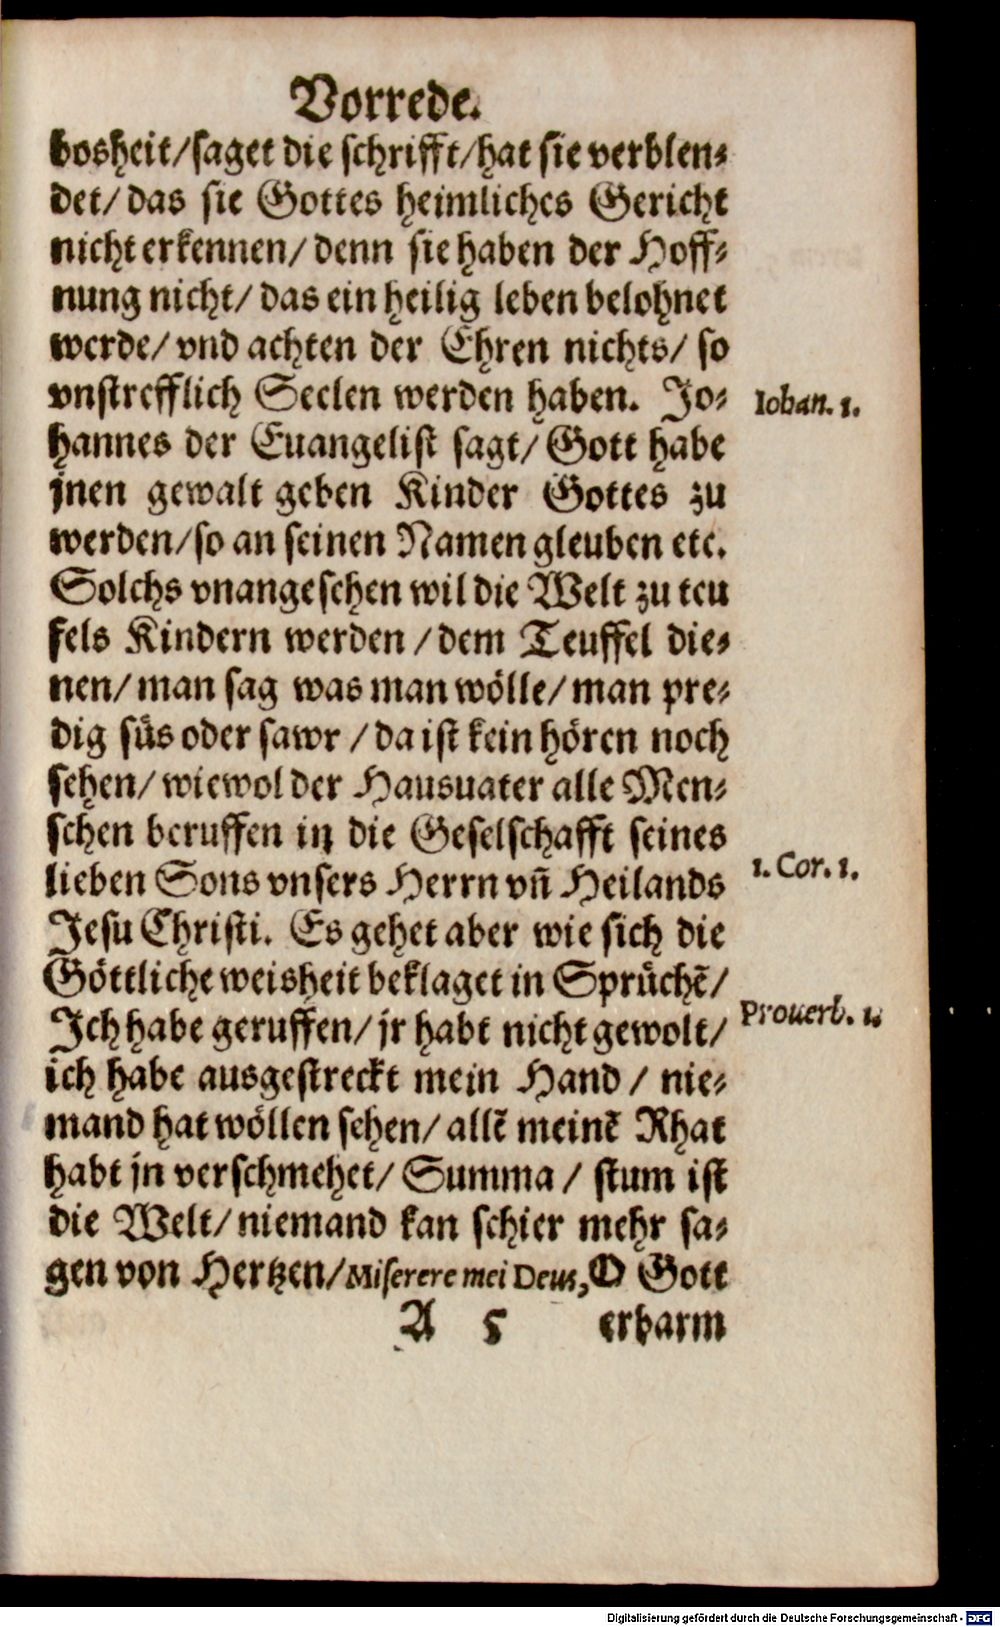 Vorrede.
bosheit/saget die schrifft/hat sie verblen-
det/ das sie Gottes heimliches Gericht
nicht erkennen/ denn sie haben der Hoff-
nung nicht/ das ein heilig leben belohnet
werde/ vnd achten der Ehren nichts/ so
vnstrefflich Seelen werden haben. Jo-
Iohan. 1.
hannes der Euangelist sagt/ Gott habe
jnen gewalt geben Kinder Gottes zu
werden/so an seinen Namen gleuben etc.
Solchs vnangesehen wil die Welt zu teu
fels Kindern werden /dem Teuffel die-
nen/ man sag was man wölle/ man pre-
dig süs oder sawr /da ist kein hören noch
sehen/ wiewol der Hausuater alle Men-
schen beruffen in die Geselschafft seines
lieben Sons vnsers Herrn vñ Heilands
1. Cor. 1.
Jesu Christi. Es gehet aber wie sich die
Göttliche weisheit beklaget in Sprüchẽ/
Ich habe geruffen/ jr habt nicht gewolt/
Prouerb. 1.
ich habe ausgestreckt mein Hand / nie-
mand hat wöllen sehen/ allẽ meinẽ Rhat
habt jn verschmehet/ Summa / stum ist
die Welt/ niemand kan schier mehr sa-
gen von Hertzen/Miserere mei Deus, O Gott
A 5 erbarm
Digitalisierung gefördert durch die Deutsche Forschungsgemeinschaft - DFG